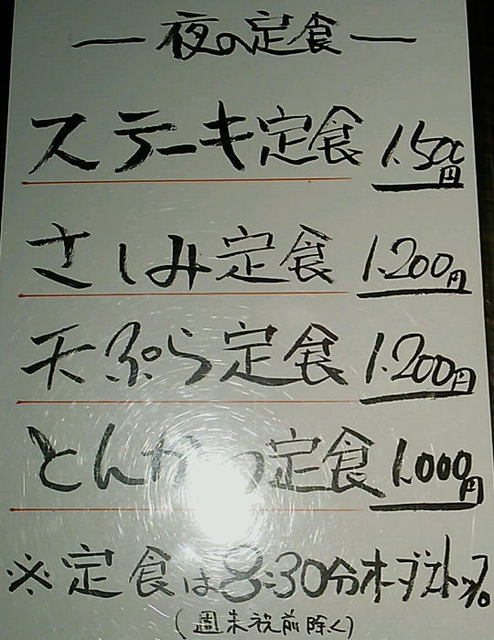 — 夜の定食 —
ステーキ定食 1.500円
さしみ定食 1.200円
天ぷら定食 1.200円
とんかつ定食 1.000円
※定食は8:30分オーダーストップ。
(週末祝前除く)